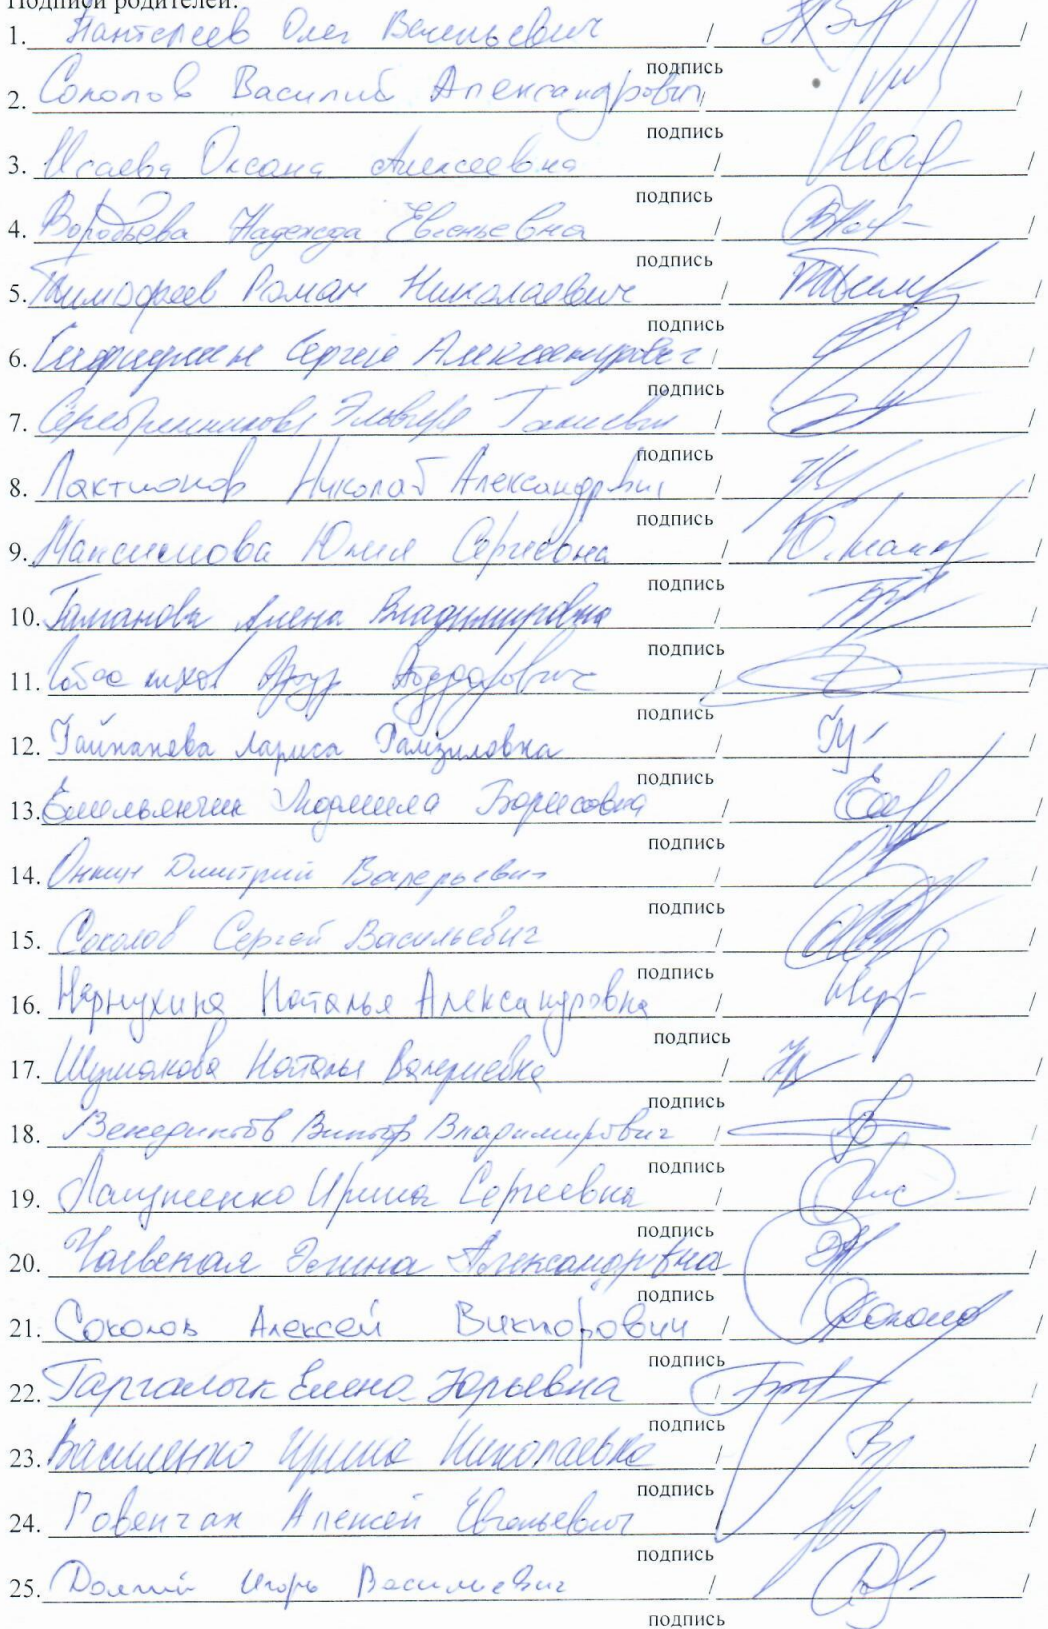 Подписи родителей:
1. Пантелеев Олег Васильевич / /
подпись
2. Соколов Василий Александрович / /
подпись
3. Исаева Оксана Алексеевна / /
подпись
4. Воробьева Надежда Евгеньевна / /
подпись
5. Тимофеев Роман Николаевич / /
подпись
6. Сергей Александрович / /
подпись
7. Серебренникова / /
подпись
8. Лактионов Николай Александрович / /
подпись
9. Максимова Юлия Сергеевна / /
подпись
10. Алена Владимировна / /
подпись
11. Артур / /
подпись
12. Гайнанова Лариса Рамзиловна / /
подпись
13. Емельянчик Людмила Борисовна / /
подпись
14. Онкин Дмитрий Валерьевич / /
подпись
15. Соколов Сергей Васильевич / /
подпись
16. Наталья Александровна / /
подпись
17. Шумакова Наталья Валериевна / /
подпись
18. Венедиктов Виктор Владимирович / /
подпись
19. Ирина Сергеевна / /
подпись
20. Александровна / /
подпись
21. Соколов Алексей Викторович / /
подпись
22. Таргалык Елена Юрьевна / /
подпись
23. Василенко Ирина Николаевна / /
подпись
24. Ровенчак Алексей Евгеньевич / /
подпись
25. Долгий Игорь Васильевич / /
подпись